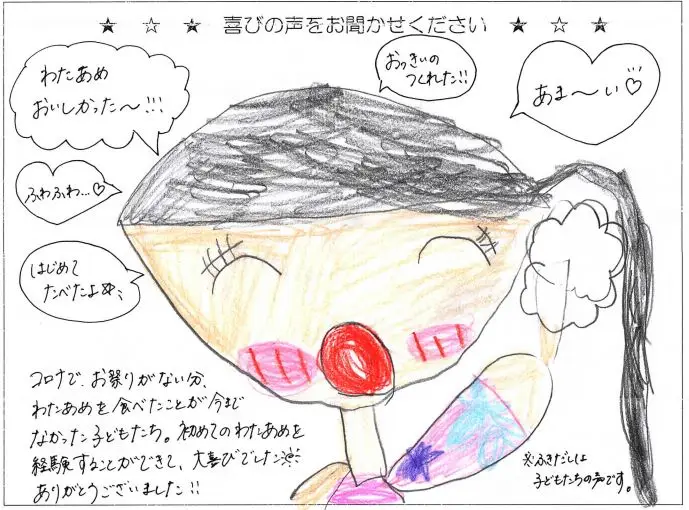 ★ ☆ ★ 喜びの声をお聞かせください ★ ☆ ★
わたあめ
おいしかった〜!!!
おっきいの
つくれた!!
あま〜い♡
ふわふわ…♡
はじめて
たべたよ
コロナで、お祭りがない分、
わたあめを食べたことが今まで
なかった子どもたち。初めてのわたあめを
経験することができて、大喜びでした
ありがとうございました!!
※ふきだしは
子どもたちの声です。